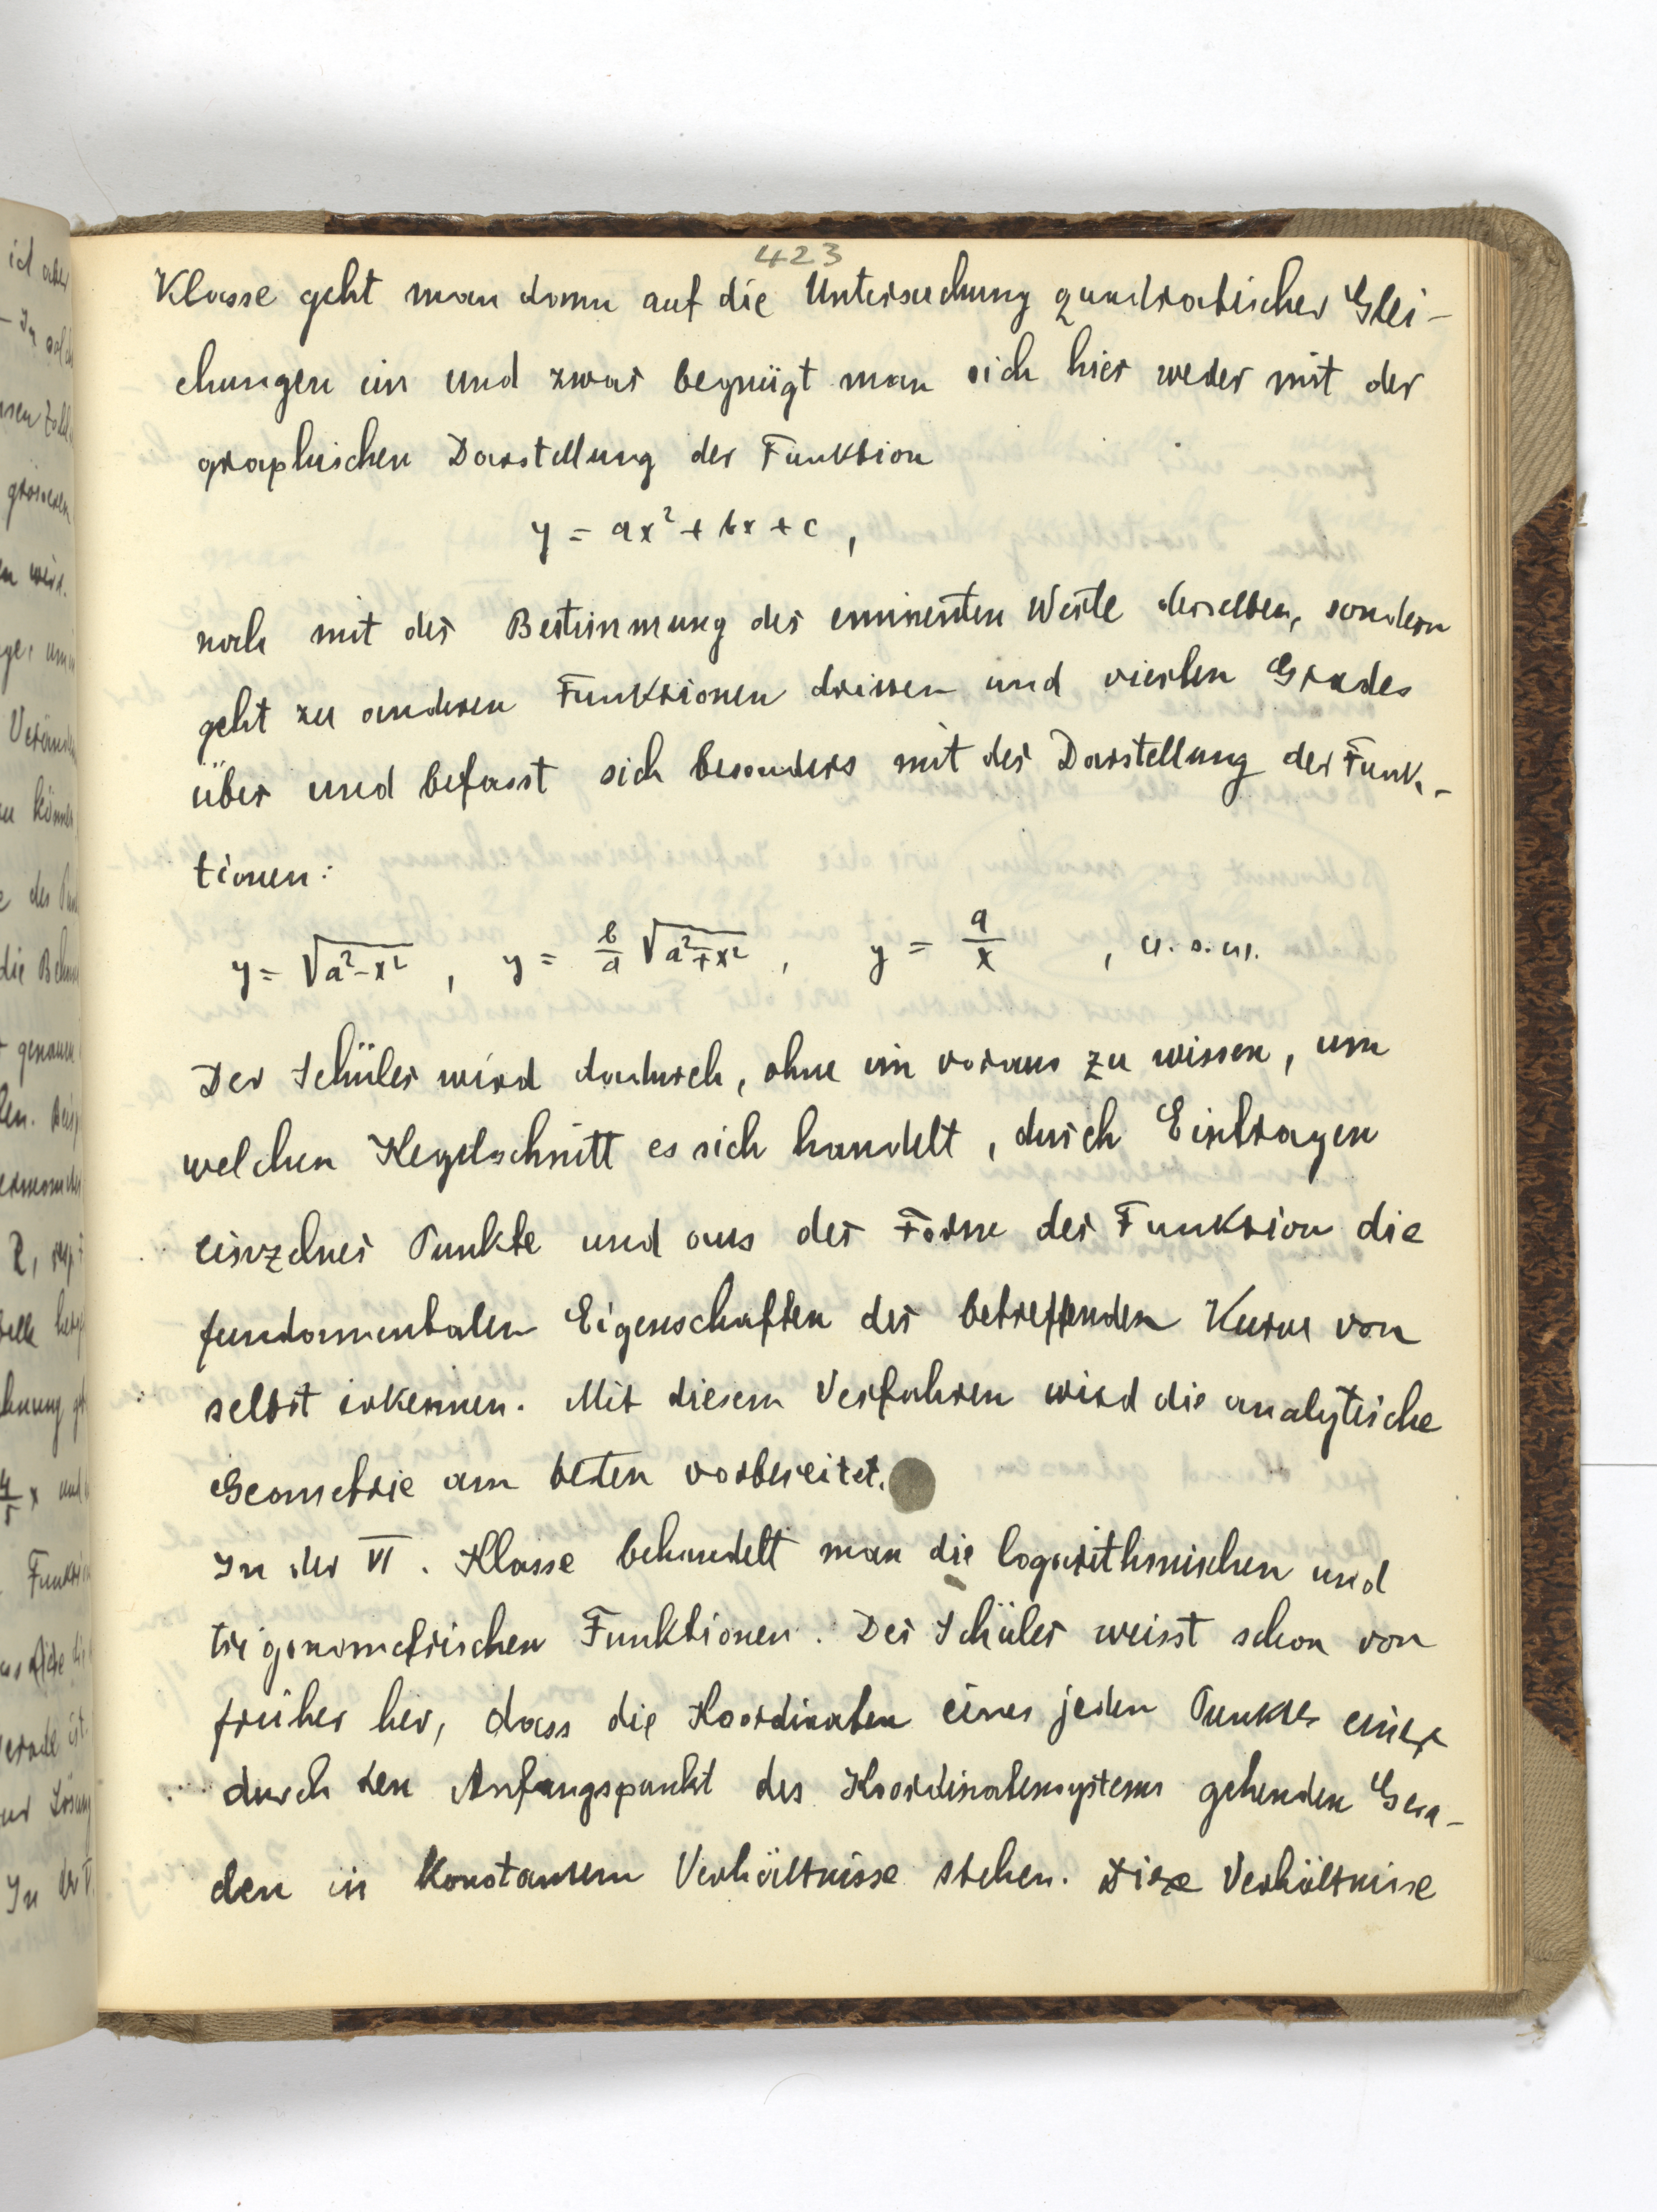 423
Klasse geht man dann auf die Untersuchung quadratischer Glei-
chungen ein und zwar begnügt man sich hier weder mit der
graphischen Darstellung der Funktion
y = ax² + bx + c ,
noch mit der Bestimmung der eminenten Werte derselben, sondern
geht zu anderen Funktionen dritten und vierten Grades
über und befasst sich besonders mit der Darstellung der Funk-
tionen:
y = √a²-x² , y = b/a √a²∓x² , y = a/x , u. s. w.
Der Schüler wird dadurch, ohne im voraus zu wissen, um
welchen Kegelschnitt es sich handelt, durch Eintragen
einzelner Punkte und aus der Form der Funktion die
fundamentalen Eigenschaften der betreffenden Kurve von
selbst erkennen. Mit diesem Verfahren wird die analytische
Geometrie am besten vorbereitet.
In der VI. Klasse behandelt man die logarithmischen und
trigonometrischen Funktionen. Der Schüler weisst schon von
früher her, dass die Koordinaten eines jeden Punktes einer
durch den Anfangspunkt des Koordinatensystems gehenden Gera-
den in konstantem Verhältnisse stehen. Diese Verhältnisse